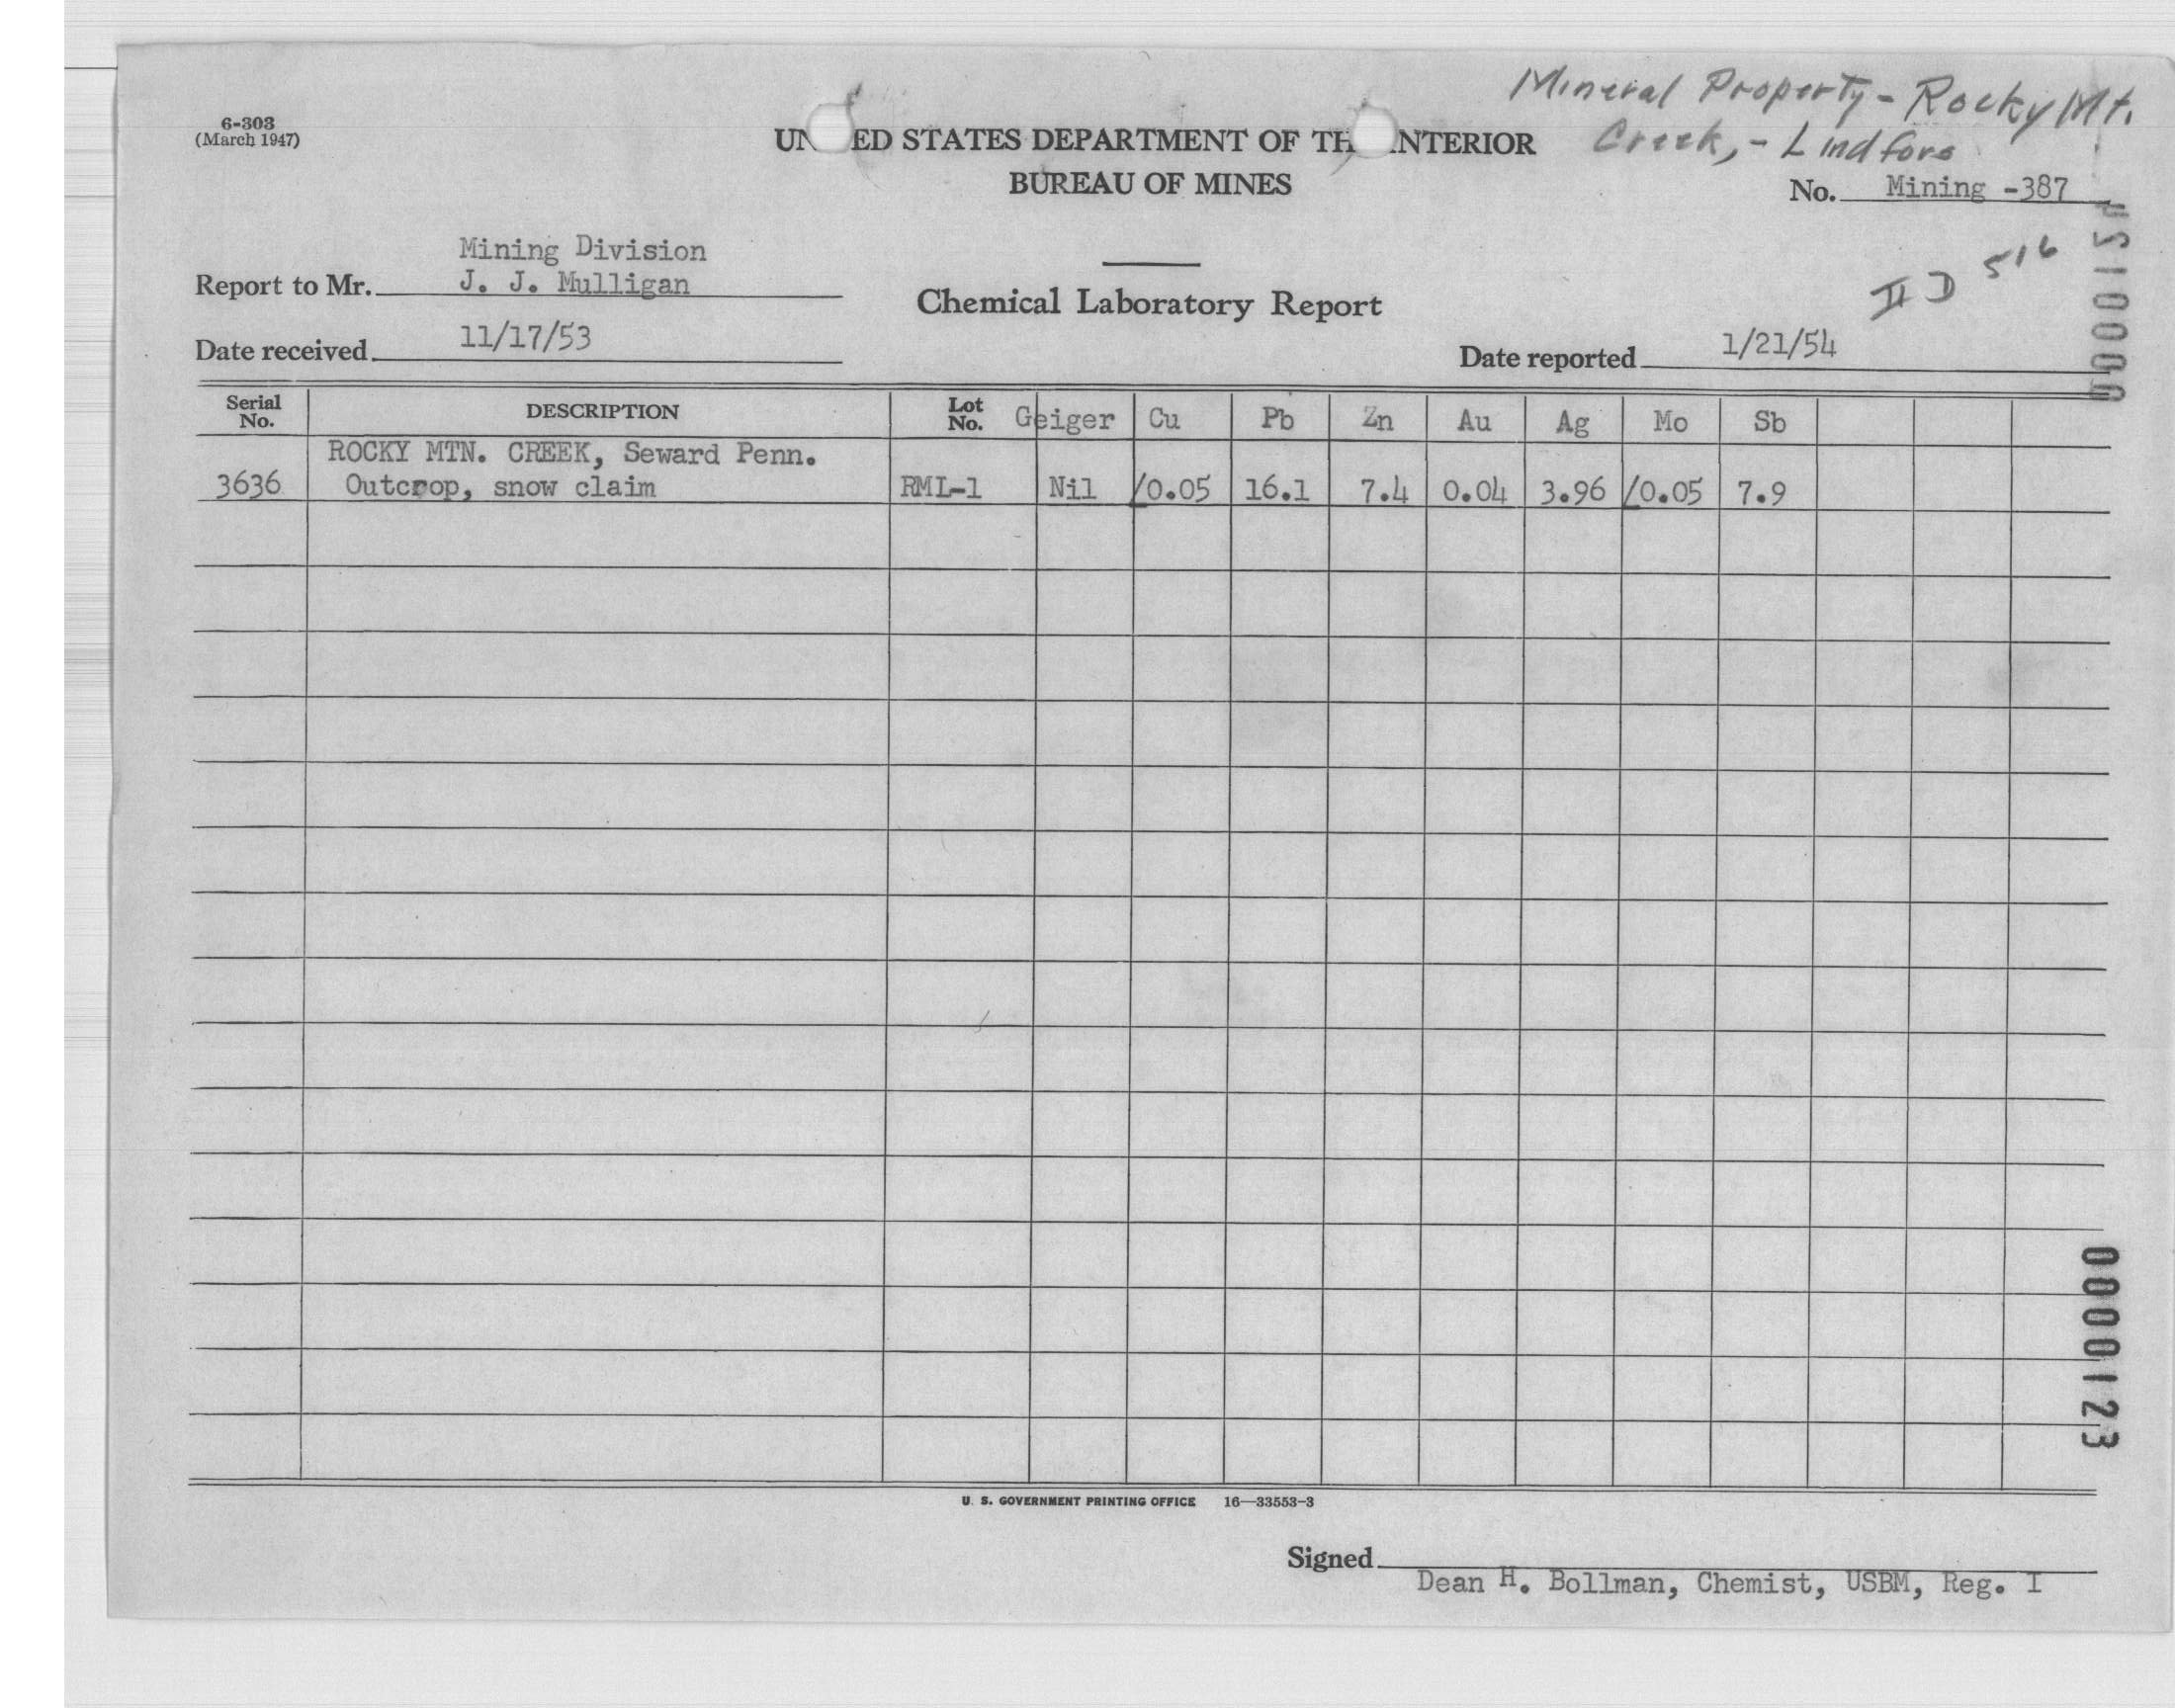 Mineral Property - Rocky Mt.
Creek, - Lindfors
6-303
(March 1947)
UN ED STATES DEPARTMENT OF TH INTERIOR
BUREAU OF MINES
No. Mining -387
II D 516
Mining Division
Report to Mr. J. J. Mulligan
Chemical Laboratory Report
Date received 11/17/53
Date reported 1/21/54
Serial No. DESCRIPTION Lot No. Geiger Cu Pb Zn Au Ag Mo Sb
ROCKY MTN. CREEK, Seward Penn.
3636 Outcrop, snow claim RML-1 Nil /0.05 16.1 7.4 0.04 3.96 /0.05 7.9
0000123
U. S. GOVERNMENT PRINTING OFFICE 16—33553-3
Signed
Dean H. Bollman, Chemist, USBM, Reg. I